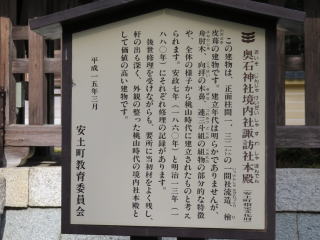 奥石神社境内社諏訪社本殿
この建物は、正面柱間一、三二㍍の一間社流造、檜
皮葺の建物です。建立年代は明らかでありませんが、
舟肘木、向拝の木鼻、連斗組の組物の部分的な特徴
や、全体の様子から桃山時代に建立されたものと考え
られます。安政七年（一八六〇年）と明治一三年（一
八八〇年）にそれぞれ修理の記録があります。
後世修理を受けながらも、要所に当初材をよく残し、
軒の出も深く、外観の整った桃山時代の境内社本殿と
して価値の高い建物です。
平成一五年三月
安土町教育委員会